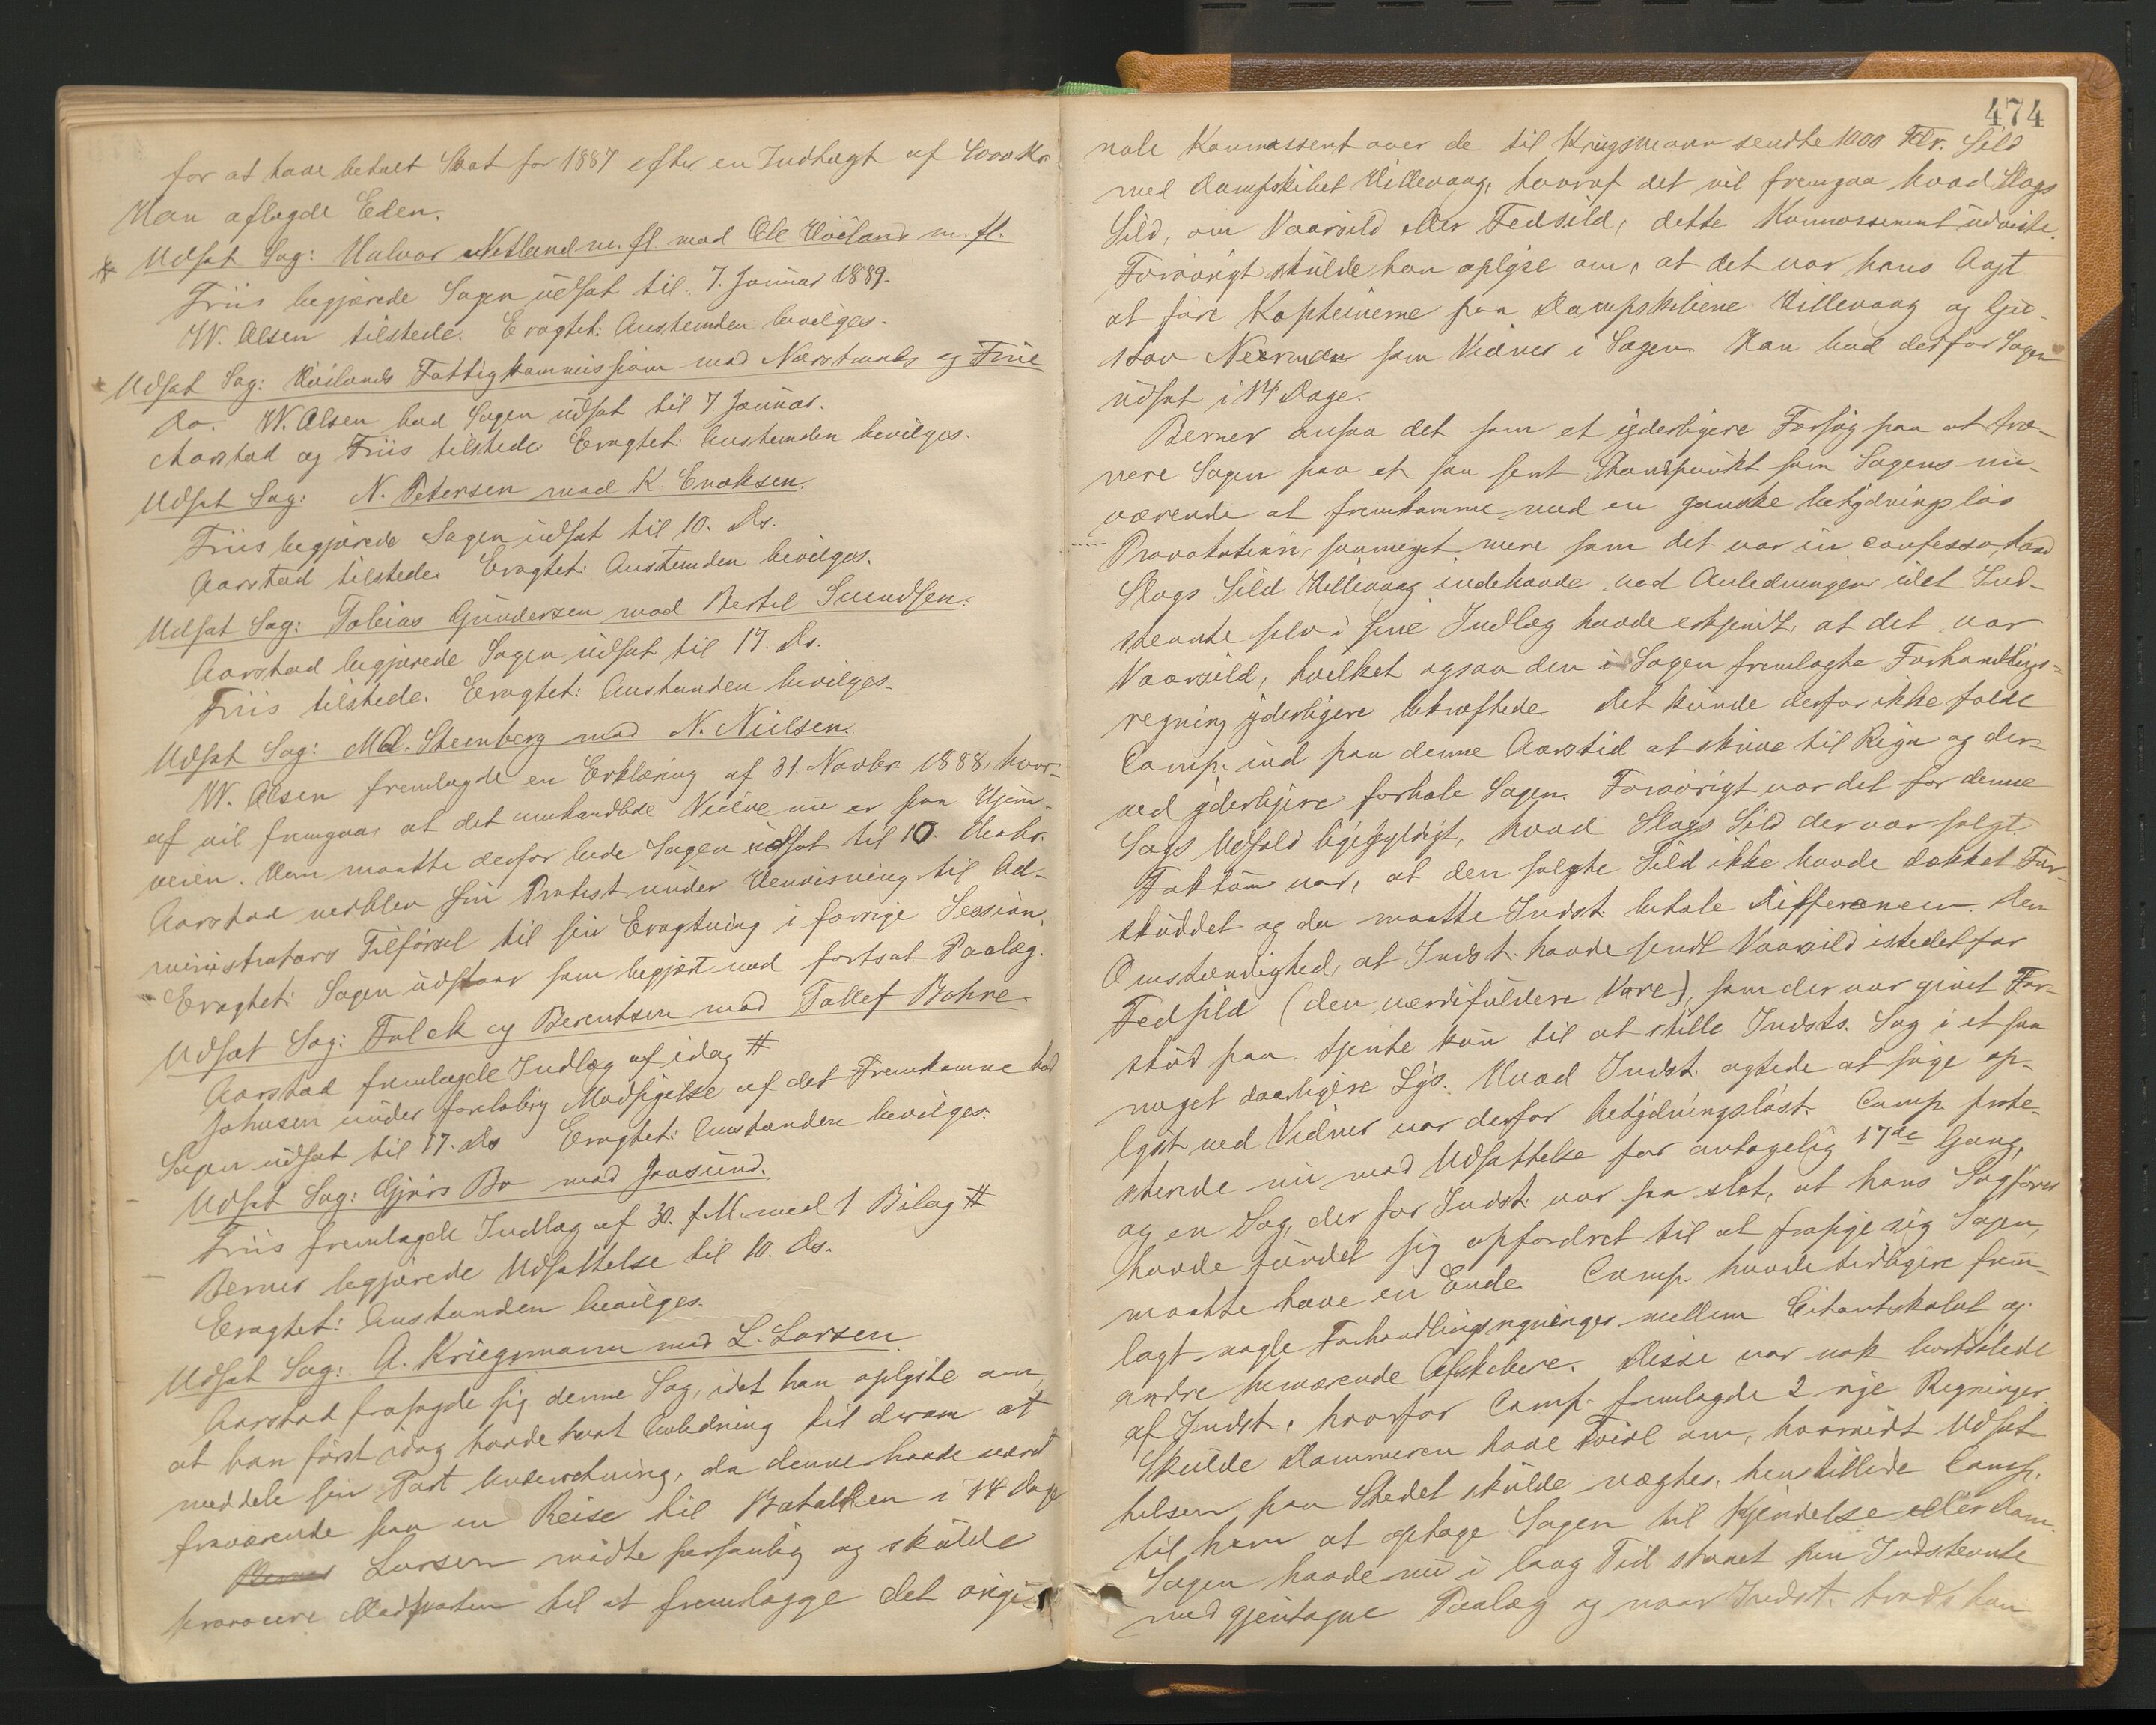 for at have betalt Skat for 1887 efter en Indtægt af 4000 Kr.
Han aflagde Eden.
# Udsat Sag: Halvor Netland m. fl mod Ole Höiland m. fl.
Friis begjærede Sagen udsat til 7. Januar 1889.
W. Olsen tilstede. Eragtet: Anstanden bevilges.
* Udsat Sag: Höilands Fattigkommission mod Nærstrands og Frue
do. W. Olsen bad Sagen udsat til 7. Januar.
Aarstad og Friis tilstede. Eragtet: Anstanden bevilges.
Udsat Sag: N. Petersen mod K. Enoksen.
Friis begjærede Sagen udsat til 10. ds.
Aarstad tilstede. Eragtet: Anstanden bevilges.
Udsat Sag: Tobias Gundersen mod Bertel Svendsen.
Aarstad begjærede Sagen udsat til 17. ds.
Friis tilstede. Eragtet: Anstanden bevilges.
Udsat Sag: M. A. Steenberg mod N. Nielsen.
W. Olsen fremlagde en Erklæring af 31. Novbr 1888, hvor-
af vil fremgaa, at det omhandlede Vidne nu er paa Hjem-
veien. Han maatte derfor bede Sagen udsat til 10.
Aarstad vedblev sin Protest under Henvisning til Ad-
ministrators Tilförsel til sin Eragtning i forrige Session.
Eragtet: Sagen udstaar som begjært med fortsat Paalæg.
Udsat Sag: Falck og Berentsen mod Tollef Bohre.
Aarstad fremlagde Indlæg af idag #
Johnsen under foreløbig Modsigelse af det Fremkomne bad
Sagen udsat til 17. ds Eragtet: Anstanden bevilges.
Udsat Sag: Gjörs Bo mod Jaasund.
Friis fremlagde Indlæg af 30. f. M. med 1 Bilag #
Berner begjærede Udsættelse til 10. ds.
Eragtet: Anstanden bevilges.
Udsat Sag: A. Kriegsmann mod L. Larsen
Aarstad frasagde sig denne Sag, idet han oplyste om,
at han först idag havde havt Anledning til derom at
meddele sin Part Underretning, da denne havde været
fraværende paa en Reise til i 14 Dage
Larsen mödte personlig og skulde
provocere Modparten til at fremlægge det origi-
474
nale Konnossent over de til Kriegsmann sendte 1000 Tdr. Sild
med Dampskibet Hillevaag, hvoraf det vil fremgaa hvad Slags
Sild, om Vaarsild eller Fedsild, dette Konnossement udviste.
Forövrigt skulde han oplyse om, at det var hans Agt
at före Kapteinerne paa Dampskibene Hillevaag og Gu-
stav som Vidner i Sagen. Han bad derfor Sagen
udsat i 14 Dage.
Berner ansaa det som et yderligere Forsøg paa at
nere Sagen paa et saa sent Standpunkt som Sagens nu-
værende at fremkomme med en ganske betydningslös
Provokation, saameget mere som det var in confesso, hvad
Slags Sild Hillevaag indehavde ved Anledningen idet Ind-
stevnte selv i sine Indlæg havde erkjendt, at det var
Vaarsild, hvilket ogsaa den i Sagen fremlagte Forhandlings-
regning yderligere bekræftede. Det kunde derfor ikke falde
Comp. ind paa denne Aarstid at skrive til Riga og der-
ved yderligere forhale Sagen. Forövrigt var det for denne
Sags Udfald ligegyldigt, hvad Slags Sild der var solgt.
Faktum var, at den solgte Sild ikke havde dækket For-
skuddet og da maatte Indst. betale Differencen. Den
Omstændighed, at Indst. havde sendt Vaarsild istedetfor
Fedsild (den værdifuldere Vare), som der var givet For-
skud paa. tjente kun til at stille Indsts. Sag i et saa
meget daarligere Lys. Hvad Indst. agtede at søge op-
lyst ved Vidner var derfor betydningslöst. Comp. prote-
sterede nu mod Udsættelse for antagelig 17de Gang,
og en Sag, der for Indst. var saa slet, at hans Sagförer
havde fundet sig opfordret til at frasige sig Sagen,
maatte have en Ende. Comp. havde tidligere frem-
lagt nogle Forhandlingsregninger mellem Citantskabet og
andre herværende Afskibere. Disse var nok bortdölede
af Indst., hvorfor Comp. fremlagde 2 nye Regninger.
Skulde Dommeren have Tvivl om, hvorvidt Udsæt-
telsen paa Stedet skulde nægtes, henstillede Comp.
til ham at optage Sagen til Kjendelse eller Dom.
Sagen havde nu i lang Tid staaet paa Indstevnte
med gjentagne Paalæg og naar Indst. trods han